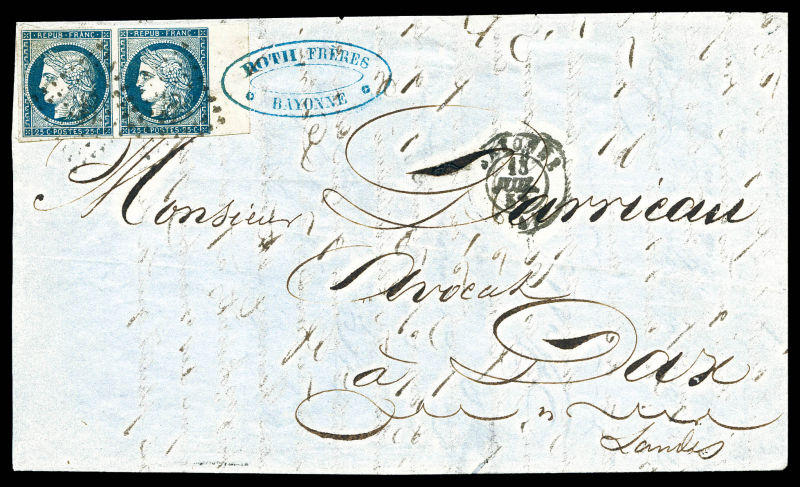 REPUB. FRANC. REPUB. FRANC.
25 C. POSTES. 25 C. 25 C. POSTES. 25 C.
ROTH FRÈRES
BAYONNE
BAYONNE
13
JUIL.
Monsieur Darricau
Avocat
à Dax
Landes